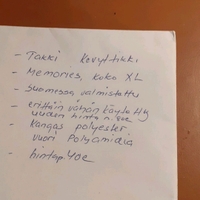 - Takki Kevyttikki
- Memories, koko XL
- Suomessa valmistettu
- erittäin vähän käytetty
uuden hinta n. 400€
- Kangas polyesteri
vuori Polyamidia
- hintap. 40€